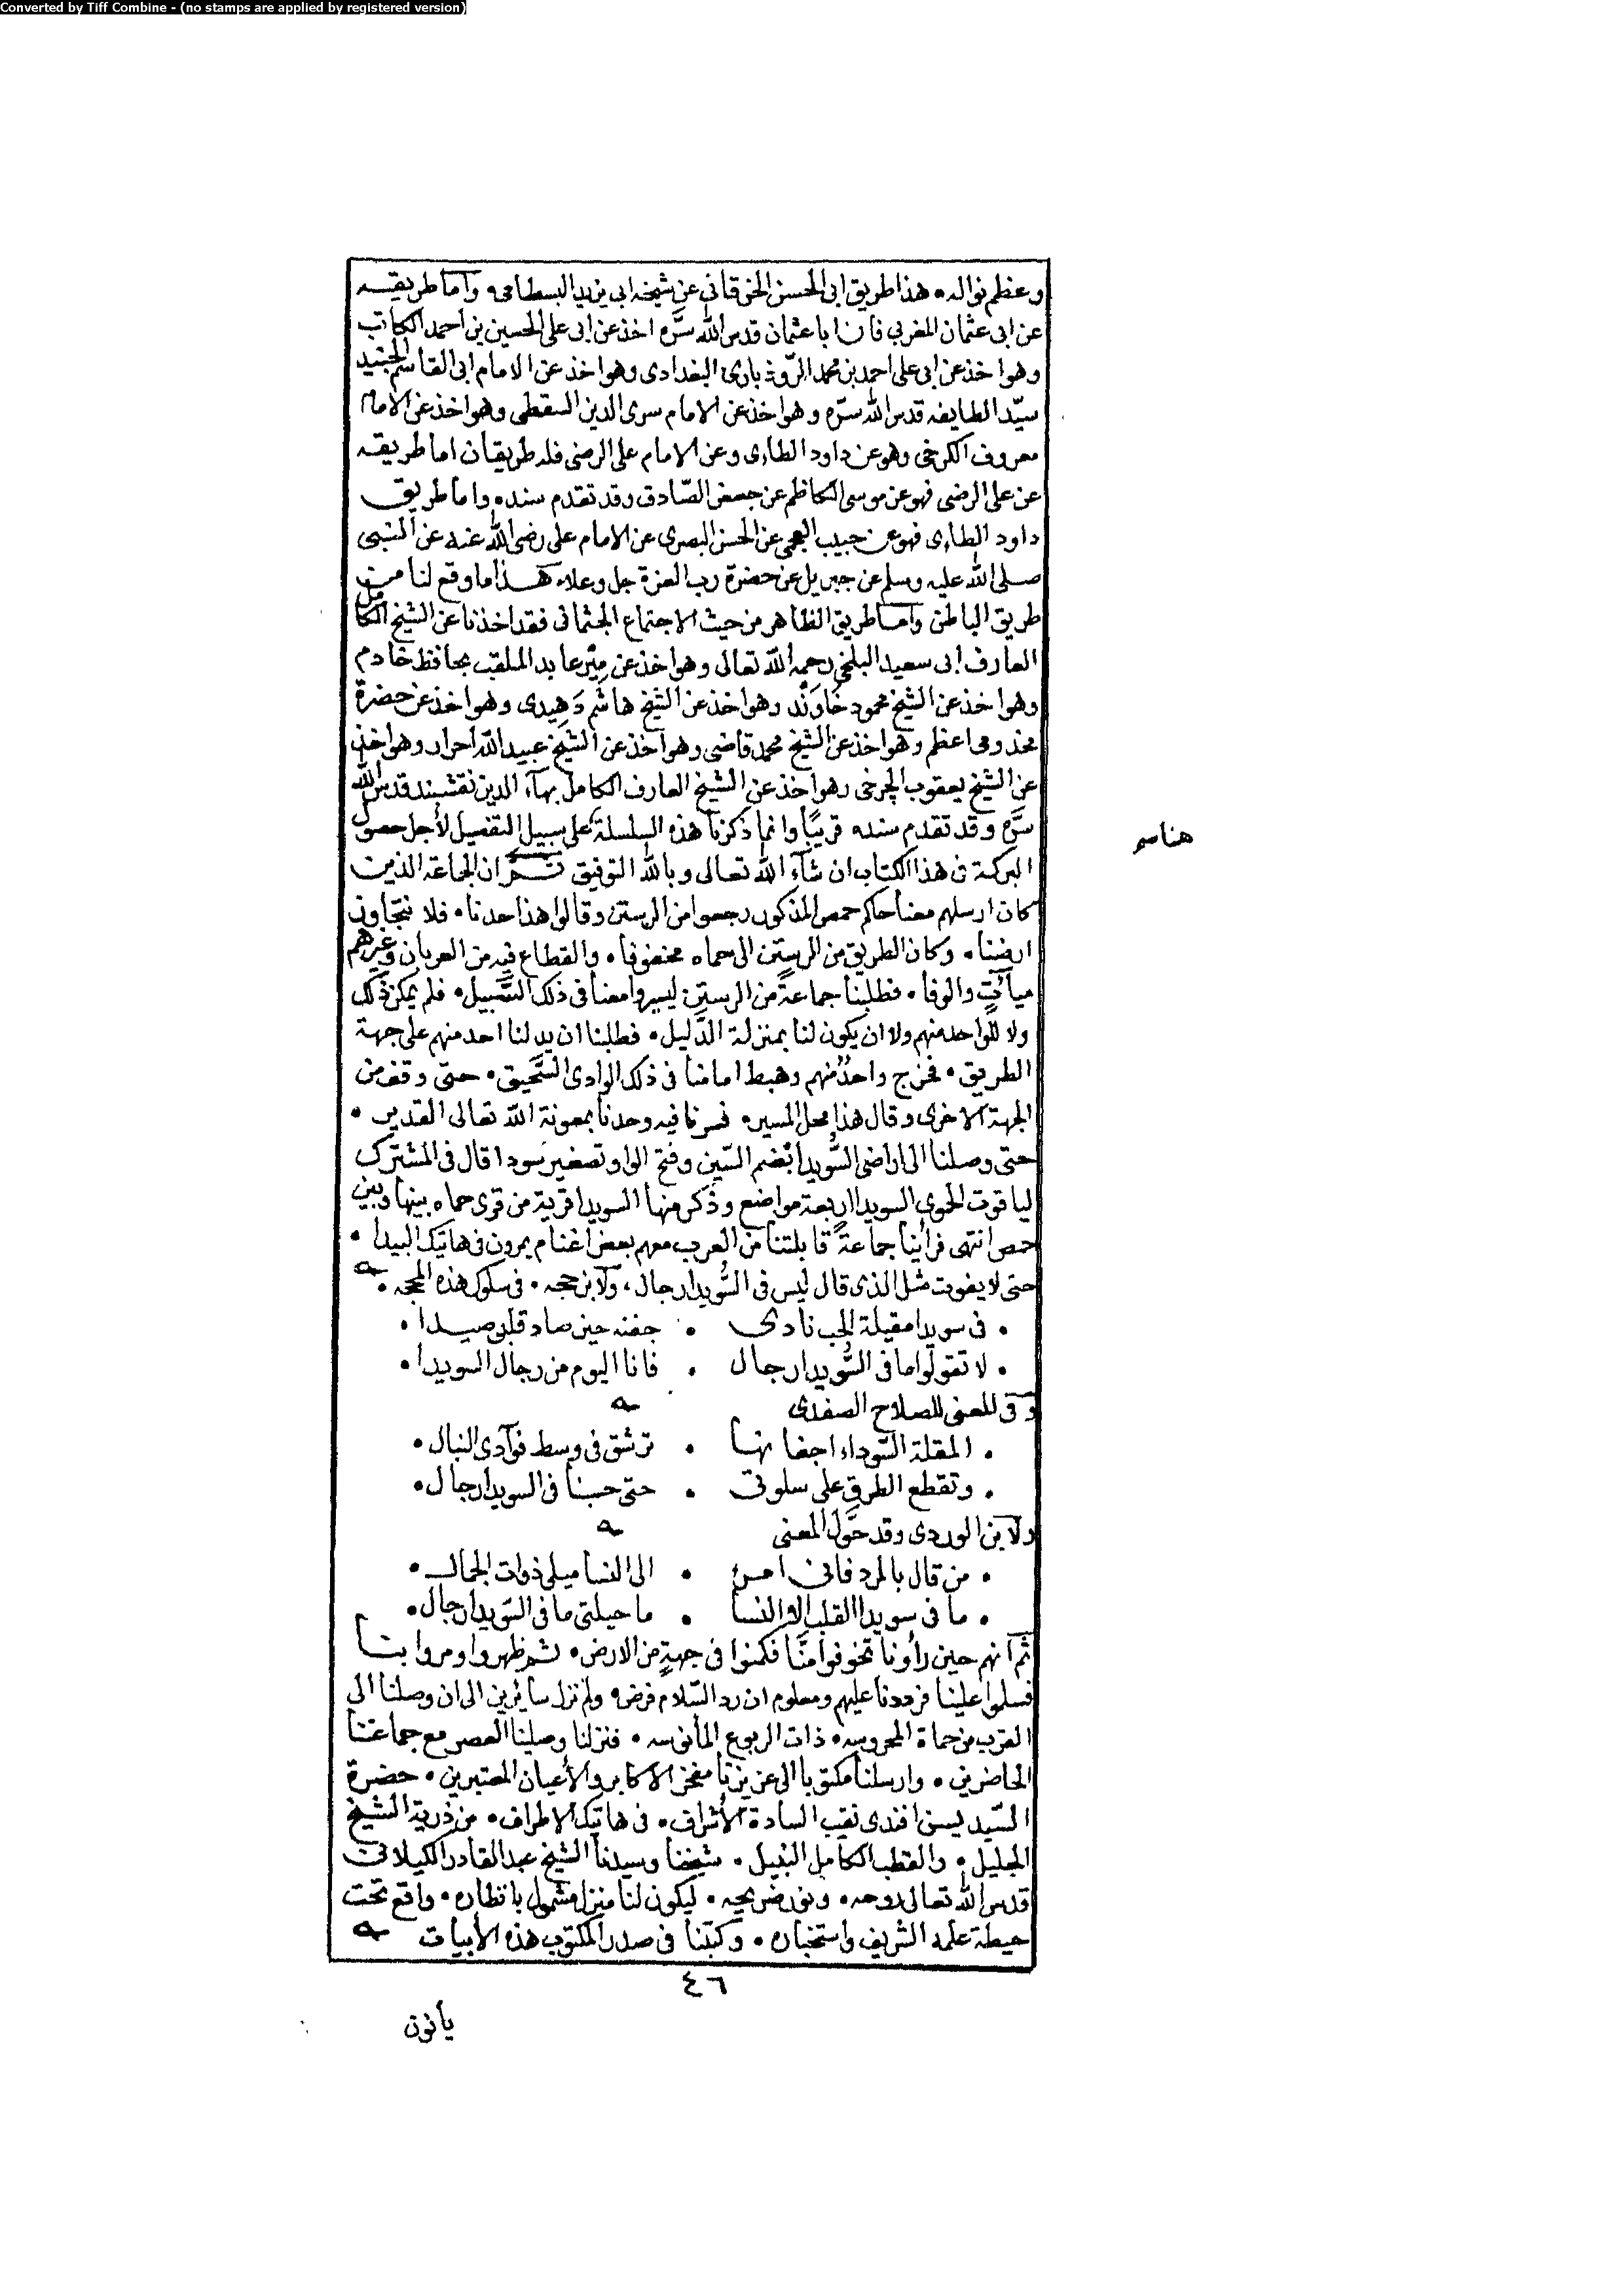 Converted by Tiff Combine - (no stamps are applied by registered version)
وعظم نواله • هذا طريق ابى الحسن الخرقانى عن شيخه ابى يزيد البسطامى • وأما طريقه
عن ابى عثمان المغربى فان ابا عثمان قدس الله سرّه اخذ عن ابى على الحسين بن احمد الكاتب
وهو اخذ عن ابى على احمد بن محمد الرّوذبارى البغدادى وهو اخذ عن الامام ابى القاسم الجنيد
سيّد الطايفه قدس الله سرّه وهو اخذ عن الامام سرى الدين السقطى وهو اخذ عن الامام
معروف الكرخى وهو عن داود الطاءى وعن الامام على الرضى فله طريقان اما طريقه
عن على الرضى فهو عن موسى الكاظم عن جعفر الصّادق وقد تقدم سنده • واما طريق
داود الطاءى فهو عن حبيب العجمى عن الحسن البصرى عن الامام على رضى الله عنه عن النبى
صلى الله عليه وسلم عن جبريل عن حضرة رب العزة جل وعلا • هذا ما وقع لنا من
طريق الباطن وأما طريق الظاهر من حيث الاجتماع الجثمانى فقد اخذنا عن الشيخ الكامل
العارف ابى سعيد البلخى رحمه الله تعالى وهو اخذ عن مير عابد الملقب بحافظ خادم
وهو اخذ عن الشيخ محمود خاوَنْد وهو اخذ عن الشيخ هاشم دَهِيدى وهو اخذ عن حضرة
مخدومى اعظم وهو اخذ عن الشيخ محمد قاضى وهو اخذ عن الشيخ عبيد الله احرار وهو اخذ
عن الشيخ يعقوب الچرخى وهو اخذ عن الشيخ العارف الكامل بهآء الدين نقشبند قدس الله
سرّه وقد تقدم سنده قريبًا وانما ذكرنا هذه السلسلة على سبيل التفصيل لأجل حصول
البركة فى هذا الكتاب ان شآء الله تعالى وبالله التوفيق ثم ان الجماعة الذين
كان ارسلهم معنا حاكم حمص المذكور رجعوا من الرستن وقالوا هذا حدنا • فلا نتجاوز
ارضنا • وكان الطريق من الرستن الى حماه مخوفا • والقطاع فيه من العربان وغيرهم
ميآتٍ والوفا • فطلبنا جماعةً من الرستن ليسيروا معنا فى ذلك السَّبيل • فلم يمكن ذلك
ولا للواحد منهم ولا ان يكون لنا بمنزلة الدَّليل • فطلبنا ان يدلنا احد منهم على جهة
الطريق • فخرج واحدٌ منهم وهبط امامنا فى ذلك الوادى السَّحيق • حتى وقف من
الجهة الاخرى وقال هذا محل المسير • فسرنا فيه وحدنا بمعونة الله تعالى القدير •
حتى وصلنا الى اراضى السُّويدا بضم السّين وفتح الواو تصغير سودا قال فى المشترك
لياقوت الحموى السويدا اربعة مواضع وذكر منها السويدا قرية من قرى حماه بينها وبين
حمص انتهى فرأينا جماعةً قابلتنا من العرب معهم بعض اغنام يمرون فى هاتيك البيدا •
حتى لا يفوت مثل الذى قال ليس فى السُّويدا رجال، ولابن حجه • فى سلوك هذه المحجه •
• فى سويدا مقيلة الحب نادى • جفنه حين صاد قلبى صيدا •
• لا تقولوا ما فى السُّويدا رجال • فانا اليوم من رجال السويدا •
وفى المعنى للصلاح الصفدى
• المقلة السّوداء اجفانها • ترشق فى وسط فوآدى النبال •
• وتقطع الطرق على سلوتى • حتى حسبنا فى السويدا رجال •
ولابن الوردى وقد حَوَّل المعنى
• من قال بالمرد فانى امرئ • الى النسا ميلى ذوات الجمال •
• ما فى سويدا القلب الا النسا • ما حيلتى ما فى السّويدا رجال •
ثم انهم حين رأونا تخوفوا منّا فكمنوا فى جهةٍ من الارض • ثم ظهروا ومروا بنا
فسلموا علينا فرددنا عليهم ومعلوم ان رد السّلام فرض • ولم نزل سائرين الى ان وصلنا الى
القرب من حماة المحروسه • ذات الربوع المأنوسه • فنزلنا وصلينا العصر مع جماعتنا
الحاضرين • وارسلنا مكتوبا الى عزيزنا مفخر الاكابر والأعيان المعتبرين • حضرة
السّيد يسن افندى نقيب السادة الأشراف • فى هاتيك الاطراف • من ذرية الشيخ
الجليل • والقطب الكامل النبيل • شيخنا وسيدنا الشيخ عبد القادر الكيلانى
قدس الله تعالى روحه • ونور ضريحه • ليكون لنا منزل مشمول بانظاره • واقع تحت
حيطة علمه الشريف واستخباره • وكتبنا فى صدر المكتوب هذه الأبيات
هناسم
٤٦